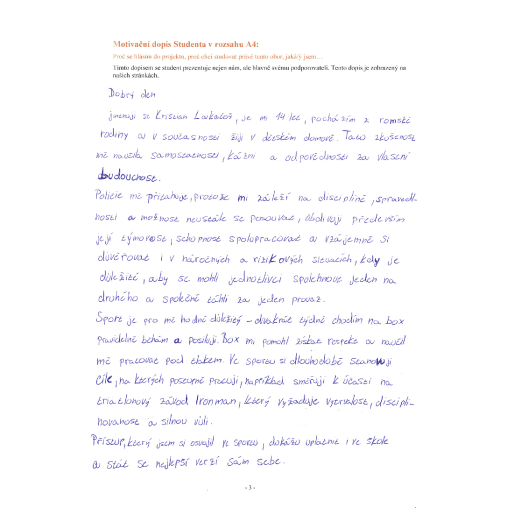 Motivační dopis Studenta v rozsahu A4:
Proč se hlásím do projektu, proč chci studovat právě tento obor, jaká/ý jsem...
Tímto dopisem se student prezentuje nejen nám, ale hlavně svému podporovateli. Tento dopis je zobrazený na
našich stránkách.
Dobrý den
jmenuji se Kristian Lakatoš, je mi 14 let, pocházím z romské
rodiny a v současnosti žiji v dětském domově. Tato zkušenost
mě naučila samostatnosti, kázni a odpovědnosti za vlastní
budoucnost.
Policie mě přitahuje, protože mi záleží na disciplíně, spravedl-
nosti a možnost neustále se posouvat, obdivuji především
její týmovost, schopnost spolupracovat a vzájemně si
důvěřovat i v náročných a rizikových situacích, kdy je
důležité, aby se mohli jednotlivci spolehnout jeden na
druhého a společně táhli za jeden provaz.
Sport je pro mě hodně důležitý - dvakrát týdně chodím na box
pravidelně běhám a posiluji. Box mi pomohl získat respekt a naučil
mě pracovat pod tlakem. Ve sportu si dlouhodobě stanovuji
cíle, na kterých postupně pracuji, například směřuji k účasti na
triatlonový závod Ironman, který vyžaduje vytrvalost, discipli-
novanost a silnou vůli.
Přístup, který jsem si osvojil ve sportu, dokážu uplatnit i ve škole
a stát se nejlepší verzí sám sebe.
- 3 -